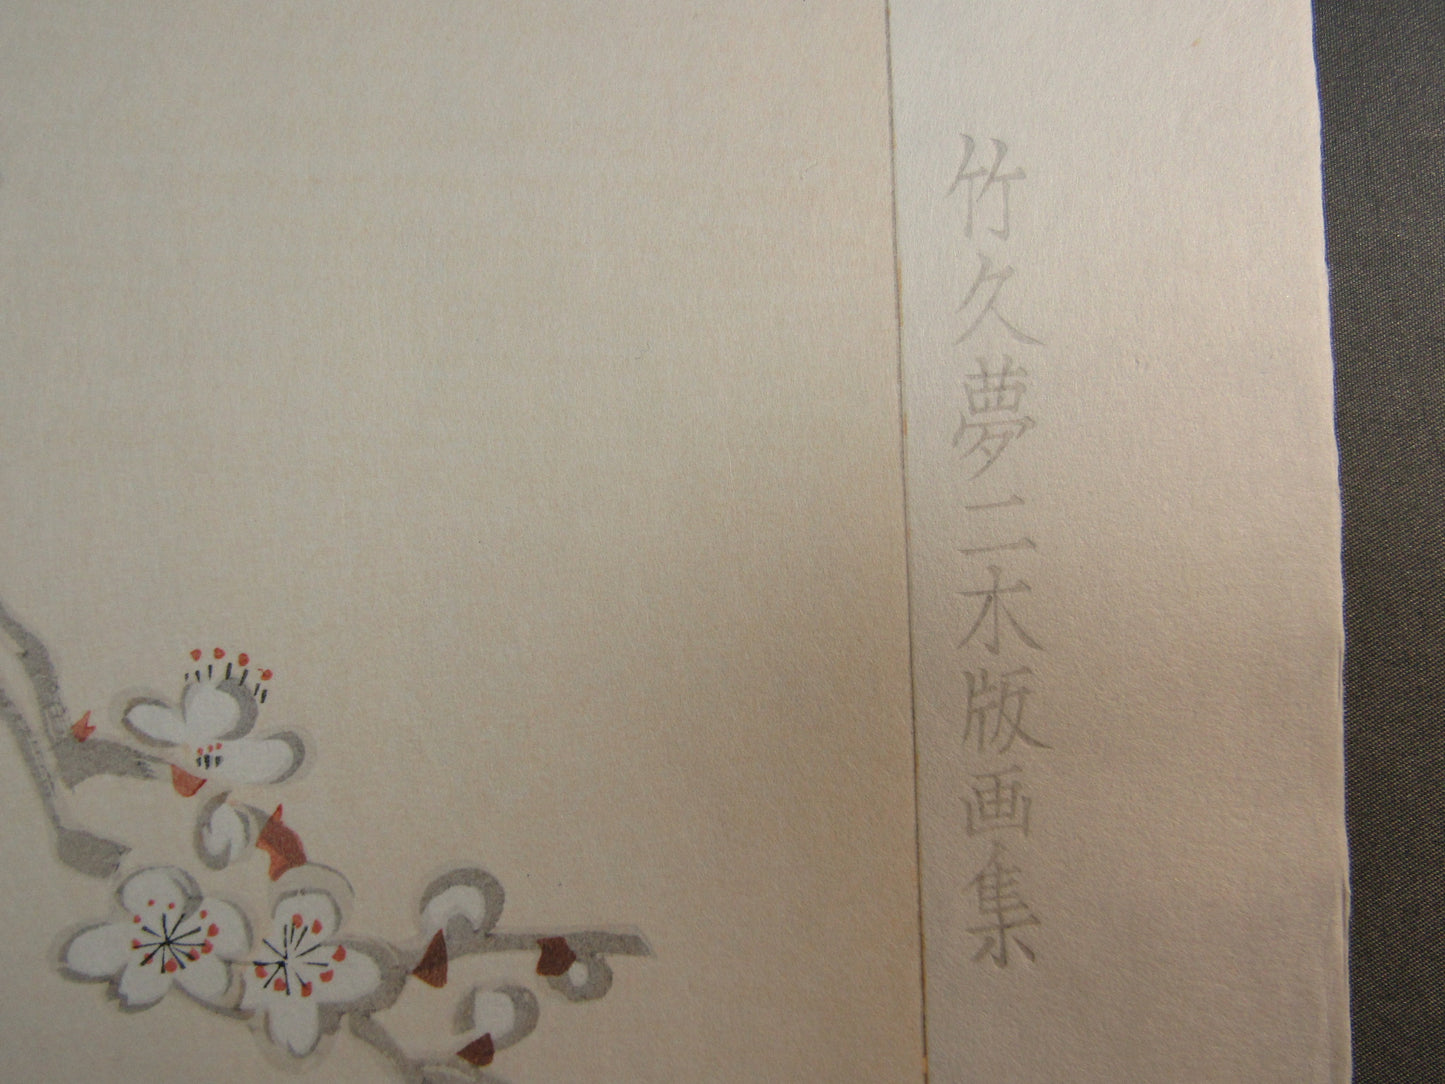 竹久夢二木版画集